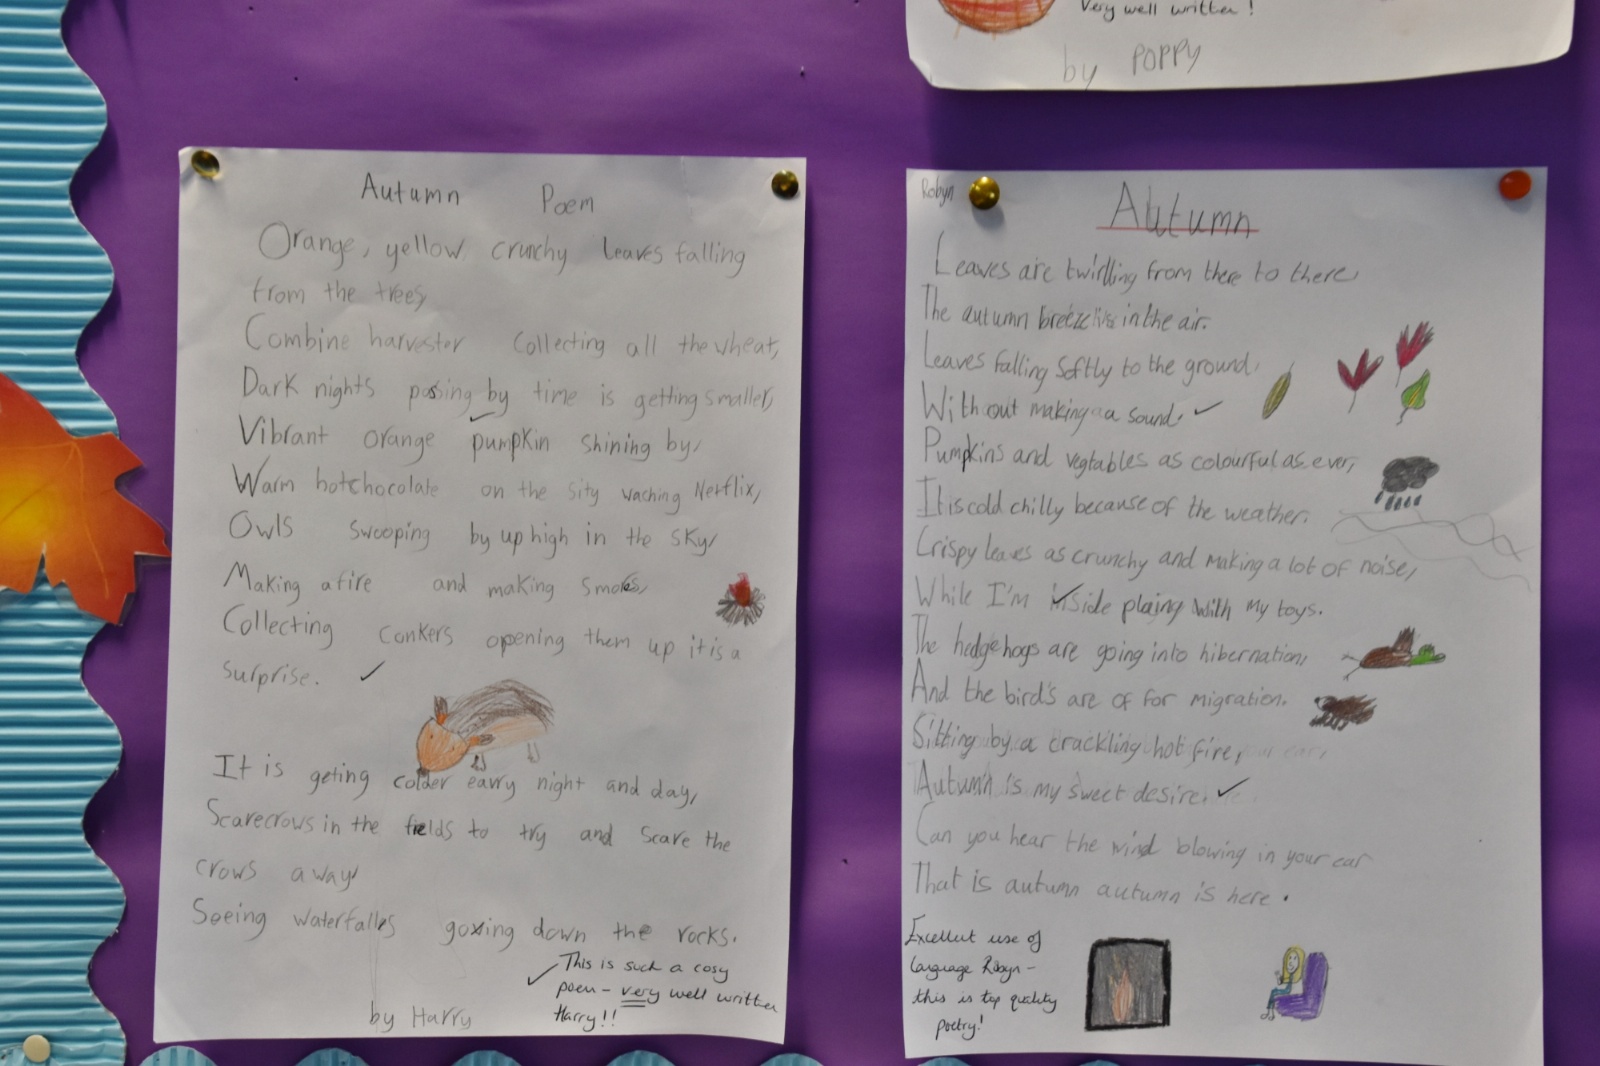 Very well written!
by POPPY
Autumn Poem
Orange, yellow crunchy leaves falling
from the trees,
Combine harvester collecting all the wheat,
Dark nights passing by time is getting smaller,
Vibrant orange pumpkin shining by,
Warm hotchocolate on the sity waching Netflix,
Owls swooping by up high in the sky,
Making a fire and making smores,
Collecting conkers opening them up it is a
surprise.
It is geting colder eavry night and day,
Scarecrows in the fields to try and scare the
crows away,
Seeing waterfalls going down the rocks.
by Harry
This is such a cosy
poem - very well written
Harry!!
Robyn
Autumn
Leaves are twirlling from there to there,
The autumn breeze is in the air.
Leaves falling softly to the ground,
Without making a sound.
Pumpkins and vegtables as colourful as ever,
It is cold chilly because of the weather.
Crispy leaves as crunchy and making a lot of noise,
While I'm inside plaing with my toys.
The hedgehogs are going into hibernation,
And the bird's are of for migration.
Sitting by a crackling hot fire,
Autumn is my sweet desire.
Can you hear the wind blowing in your ear
That is autumn autumn is here.
Excellent use of
language Robyn -
this is top quality
poetry!